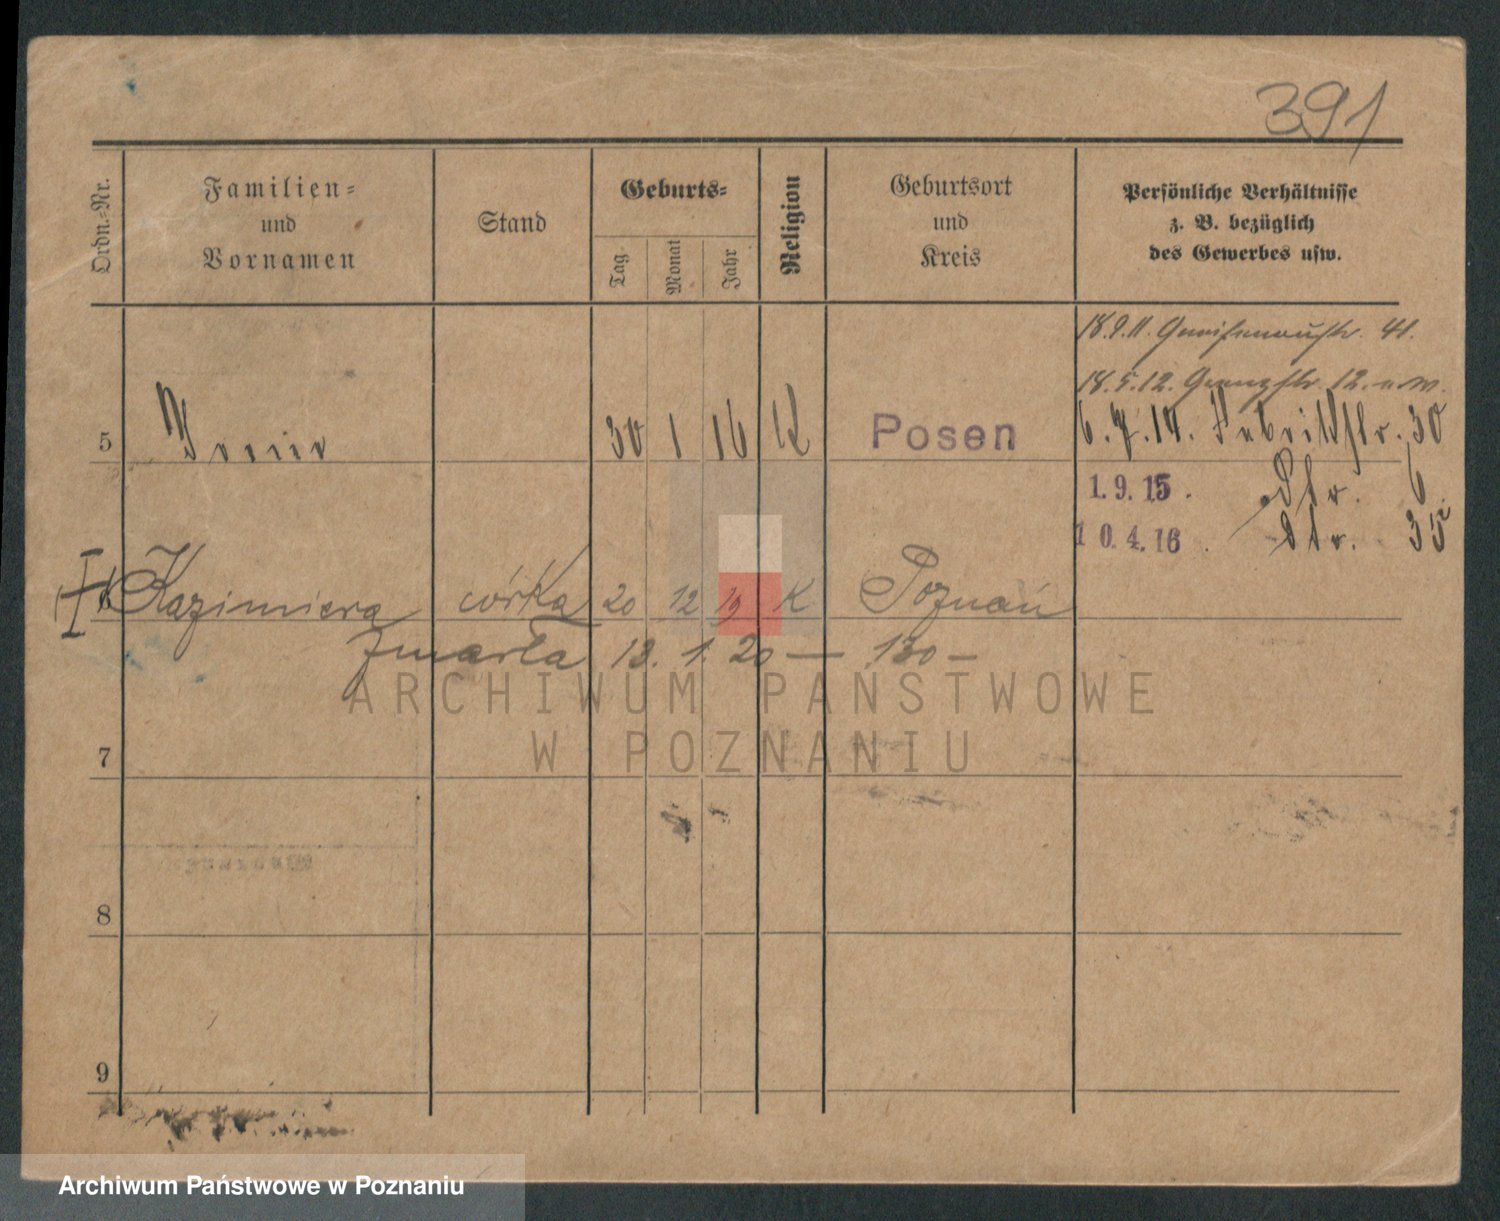 391
Ordn.=Nr.
Familien=
und
Vornamen
Stand
Geburts=
Tag
Monat
Jahr
Religion
Geburtsort
und
Kreis
Persönliche Verhältnisse
z. B. bezüglich
des Gewerbes usw.
18.9.11. Gneisenaustr. 41.
18.5.12. 12.
5 30 1 16 K Posen 6.7.14. Fabrikstr. 30
1.9.15. Str. 6
10.4.16. Str. 35
Kazimiera córka 20 12 19 K Poznań
zmarła 13. 1. 20 — 130 —
ARCHIWUM PAŃSTWOWE
W POZNANIU
7
8
9
Archiwum Państwowe w Poznaniu